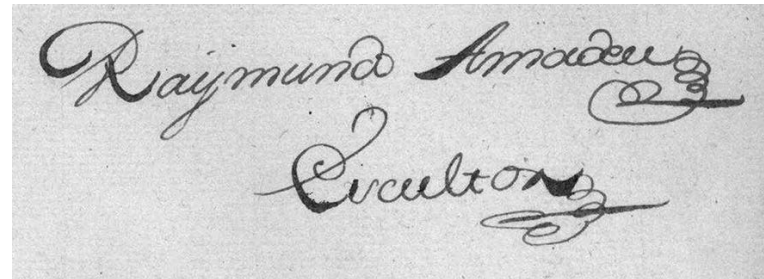 Raymund Amadeu
Escultor